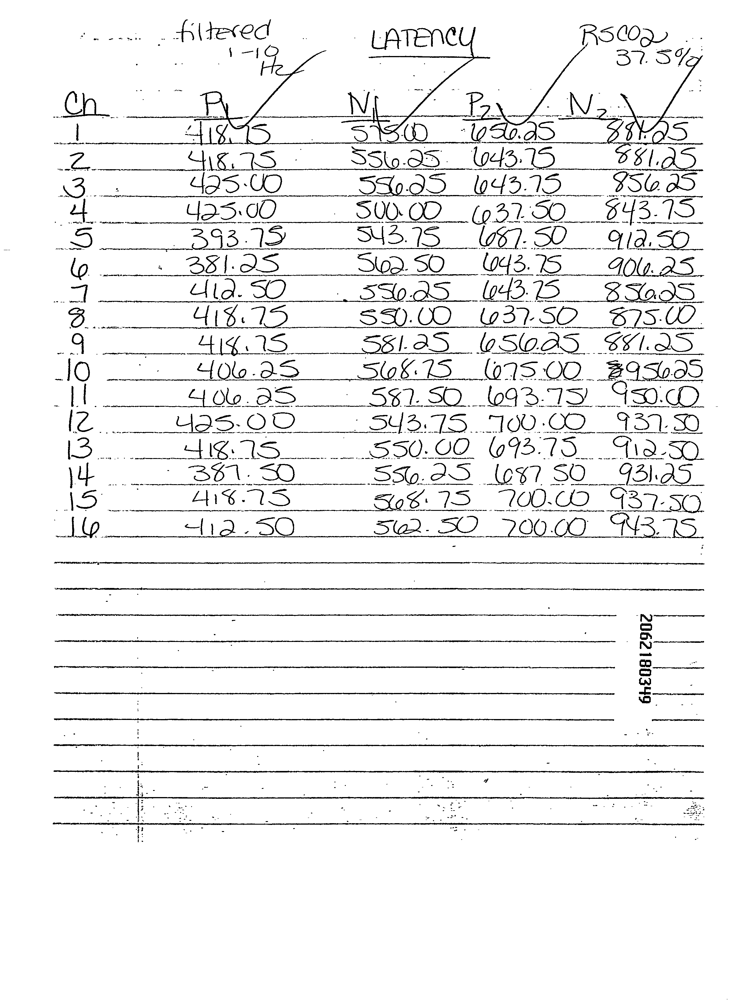 filtered LATENCY RSCO2
1-10 37.5%
Hz
Ch P1 N1 P2 N2
1 418.75 575.00 656.25 881.25
2 418.75 556.25 643.75 881.25
3 425.00 556.25 643.75 856.25
4 425.00 500.00 637.50 843.75
5 393.75 543.75 687.50 912.50
6 381.25 562.50 643.75 906.25
7 412.50 556.25 643.75 856.25
8 418.75 550.00 637.50 875.00
9 418.75 581.25 656.25 881.25
10 406.25 568.75 675.00 956.25
11 406.25 587.50 693.75 950.00
12 425.00 543.75 700.00 937.50
13 418.75 550.00 693.75 912.50
14 387.50 556.25 687 50 931.25
15 418.75 568.75 700.00 937.50
16 412.50 562.50 700.00 943.75
2062180349